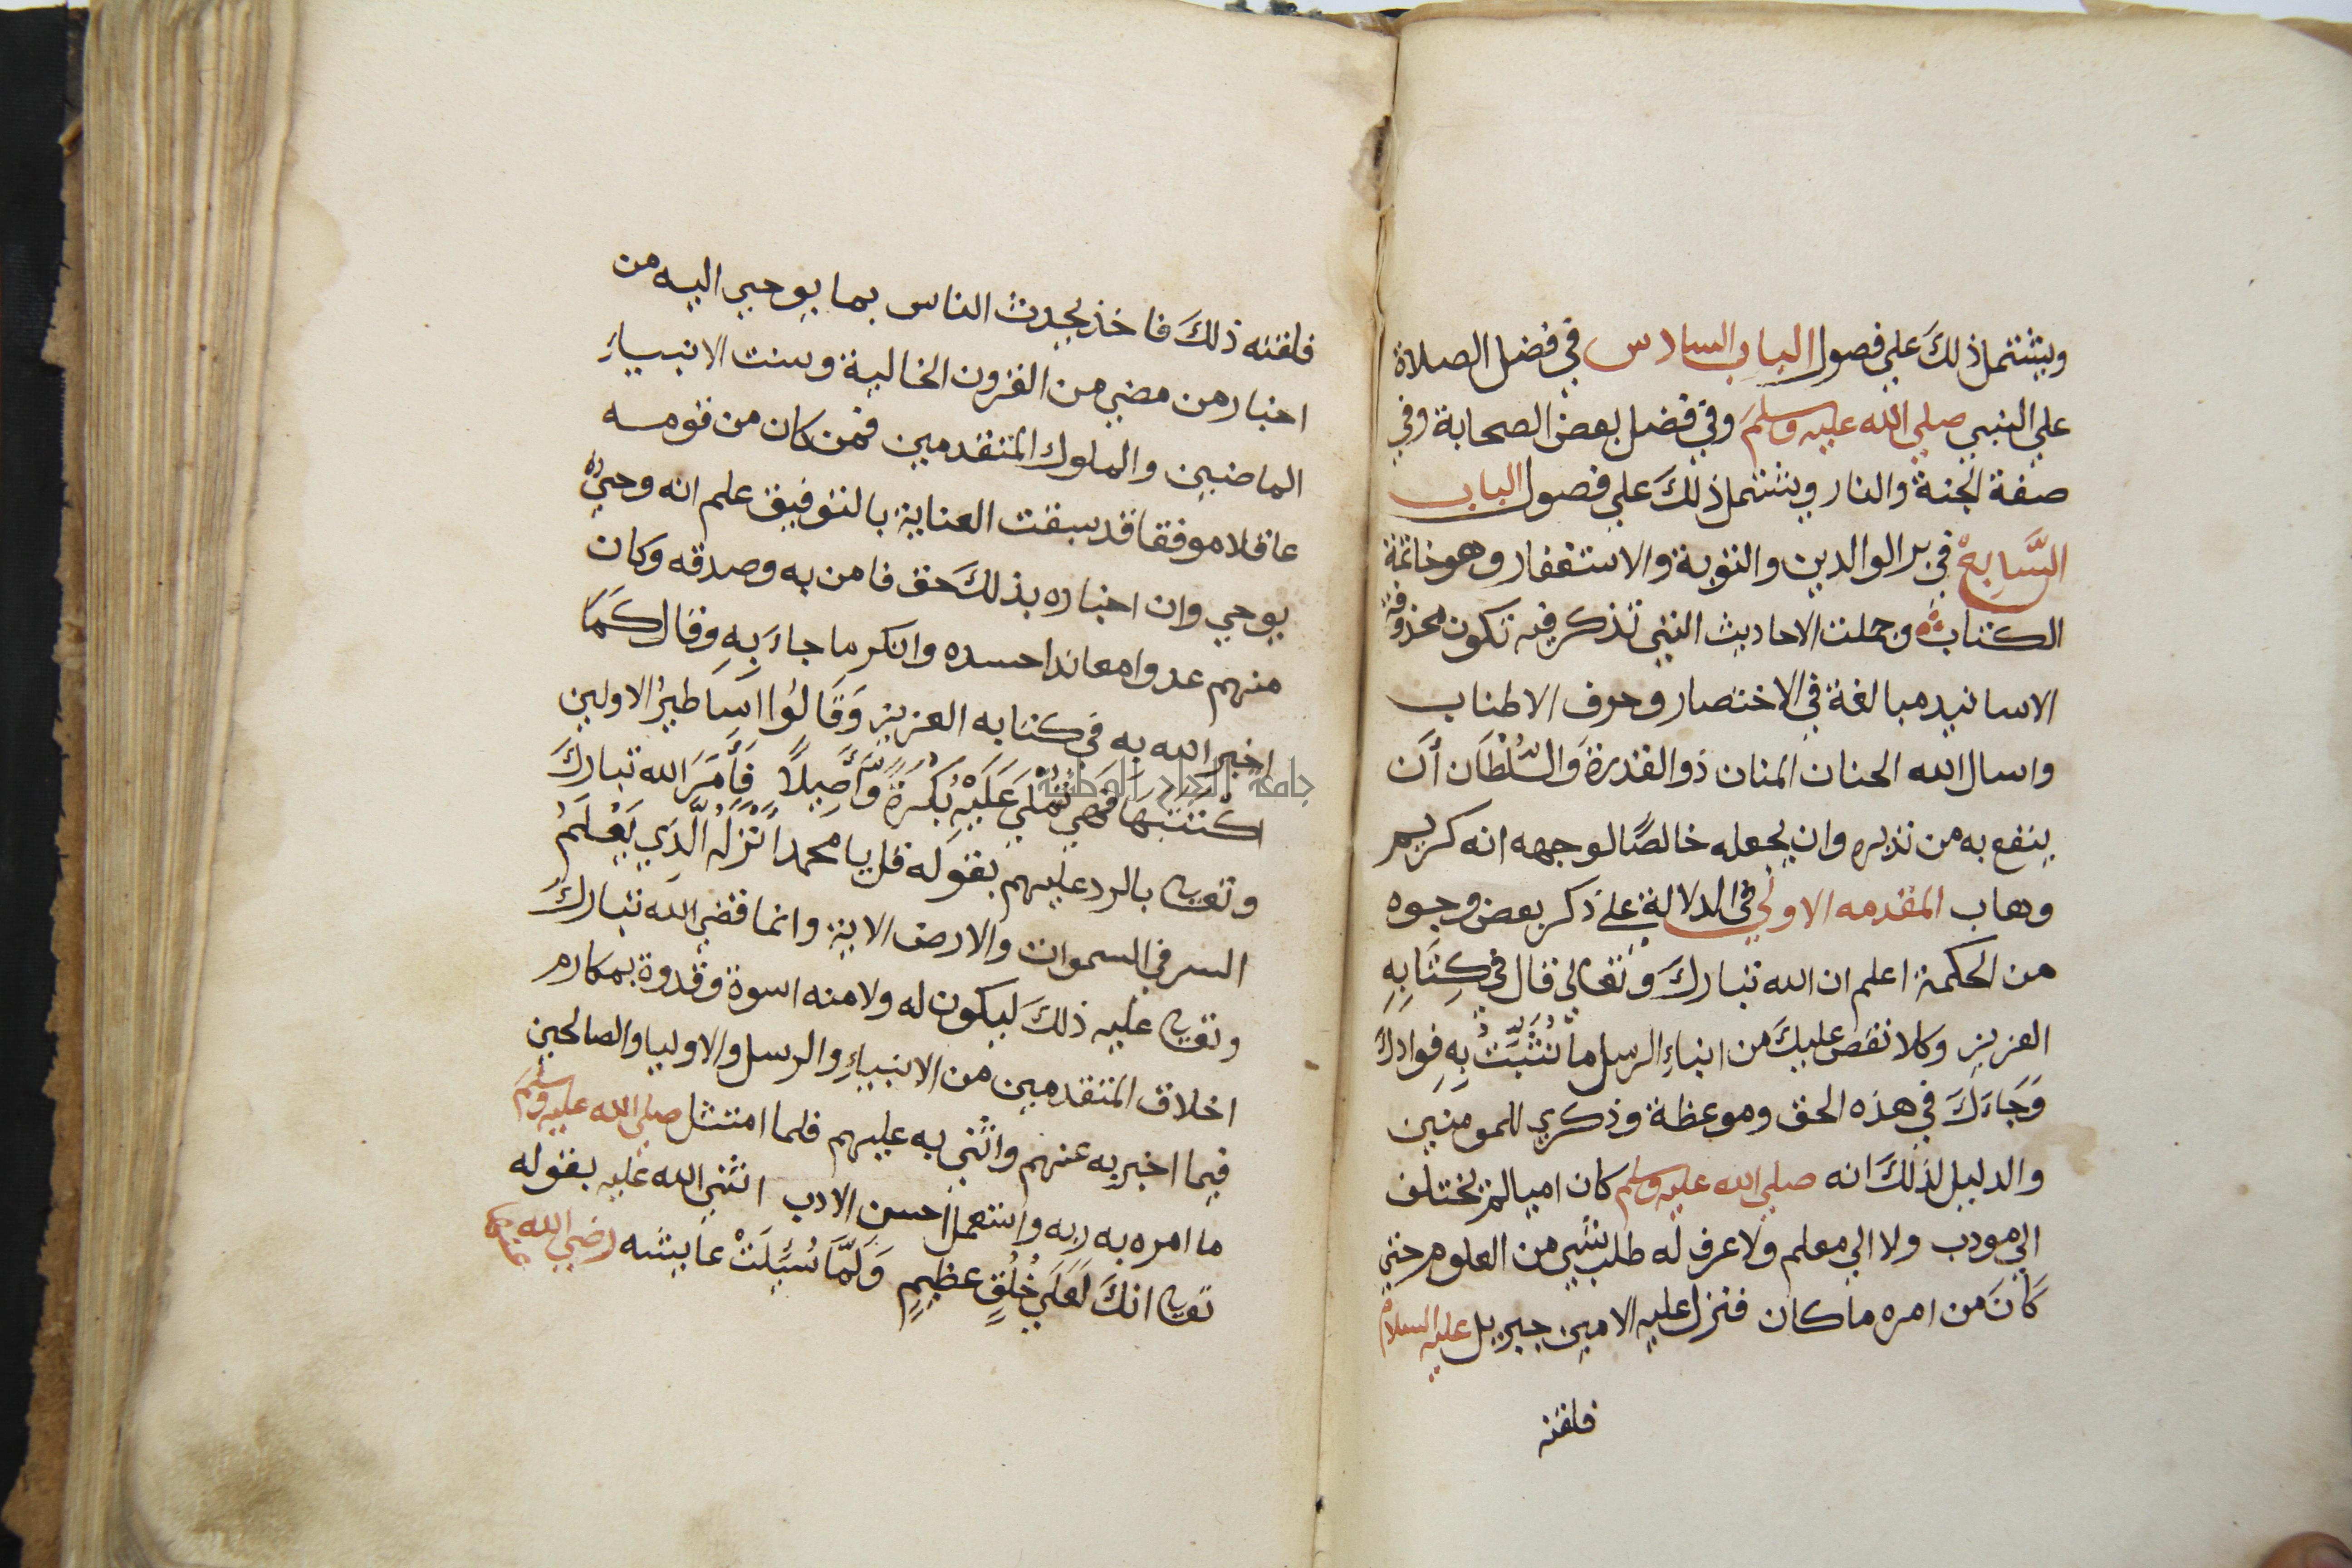 ويشتمل ذلك علي فصول الباب السادس في فضل الصلاة
علي النبي صلي الله عليه وسلم وفي فضل بعض الصحابة وفي
صفة الجنة والنار ويشتمل ذلك علي فصول الباب
السَّابع في بر الوالدين والتوبة والاستغفار وهو خاتمة
الكتاب وجملت الاحاديث التي تذكر فيه تكون محذوفة
الاسانيد مبالغة في الاختصار وخوف الاطناب
واسال الله الحنان المنان ذو القدرة وَالسُّلْطَان أن
ينفع به من تدبره وان يجعله خالصًا لوجهه انه كريم
وهاب المقدمه الاولي في الدلالة علي ذكر بعض وجوه
من الحكمة اعلم ان الله تبارك وتعالي قال في كِتَابِهِ
العزيز وكلا نقص عليك من انباءِ الرسل ما نُثَبِّتُ بِهِ فوادك
وَجَاءَكَ في هذه الحق وموعظة وذكري للمومنين
والدليل لذلك انه صلي الله عليه وسلم كان اميا لم يختلف
الي مودب ولا الي معلم ولا عرف له طلب شي من العلوم حتي
كَانَ من امره ما كان فنزل عليه الامين جبريل عليه السلام
فلقنه
فلقنه ذلك فاخذ يحدث الناس بما يوحي اليه من
اخبار من مضي من القرون الخالية وسنت الانبياءِ
الماضيين والملوك المتقدمين فمن كان من قومه
عاقلا موفقا قد سبقت العناية بالتوفيق علم انه وحي
يوحي وان اخباره بذلك حق فامن به وصدقه وكان
منهم عدوا معاندا حسده وانكر ما جاءَ بِهِ وقال كَمَا
اخبر الله به في كتابه العزيز وَقَالُوا اسَاطيرُ الاولين
اكْتَتَبَهَا فَهِي تُمْلَي عَلَيْهِ بُكْرَةً وَّأَصِيلًا فَأَمَرَ الله تبارك
وتعالى بالرد عليهم بقوله قل يا محمد أَنْزَلَهُ الَّذِي يَعْلَمُ
السر في السموات والارض الاية وانما قضي الله تبارك
وتعالى عليه ذلك ليكون له ولامته اسوة وقدوة بمكارم
اخلاق المتقدمين من الانبياءِ والرسل والاوليا والصالحين
فيما اخبر به عنهم واثني به عليهم فلما امتثل صلي الله عليه وسلم
ما امره به ربه واستعمل احسن الادب اثني الله عليه بقوله
تعالى انك لَعَلَي خُلُقٍ عظيمٍ وَلَمَّا سُئِلَتْ عايشه رضي الله عنها
جامعة النجاح الوطنية